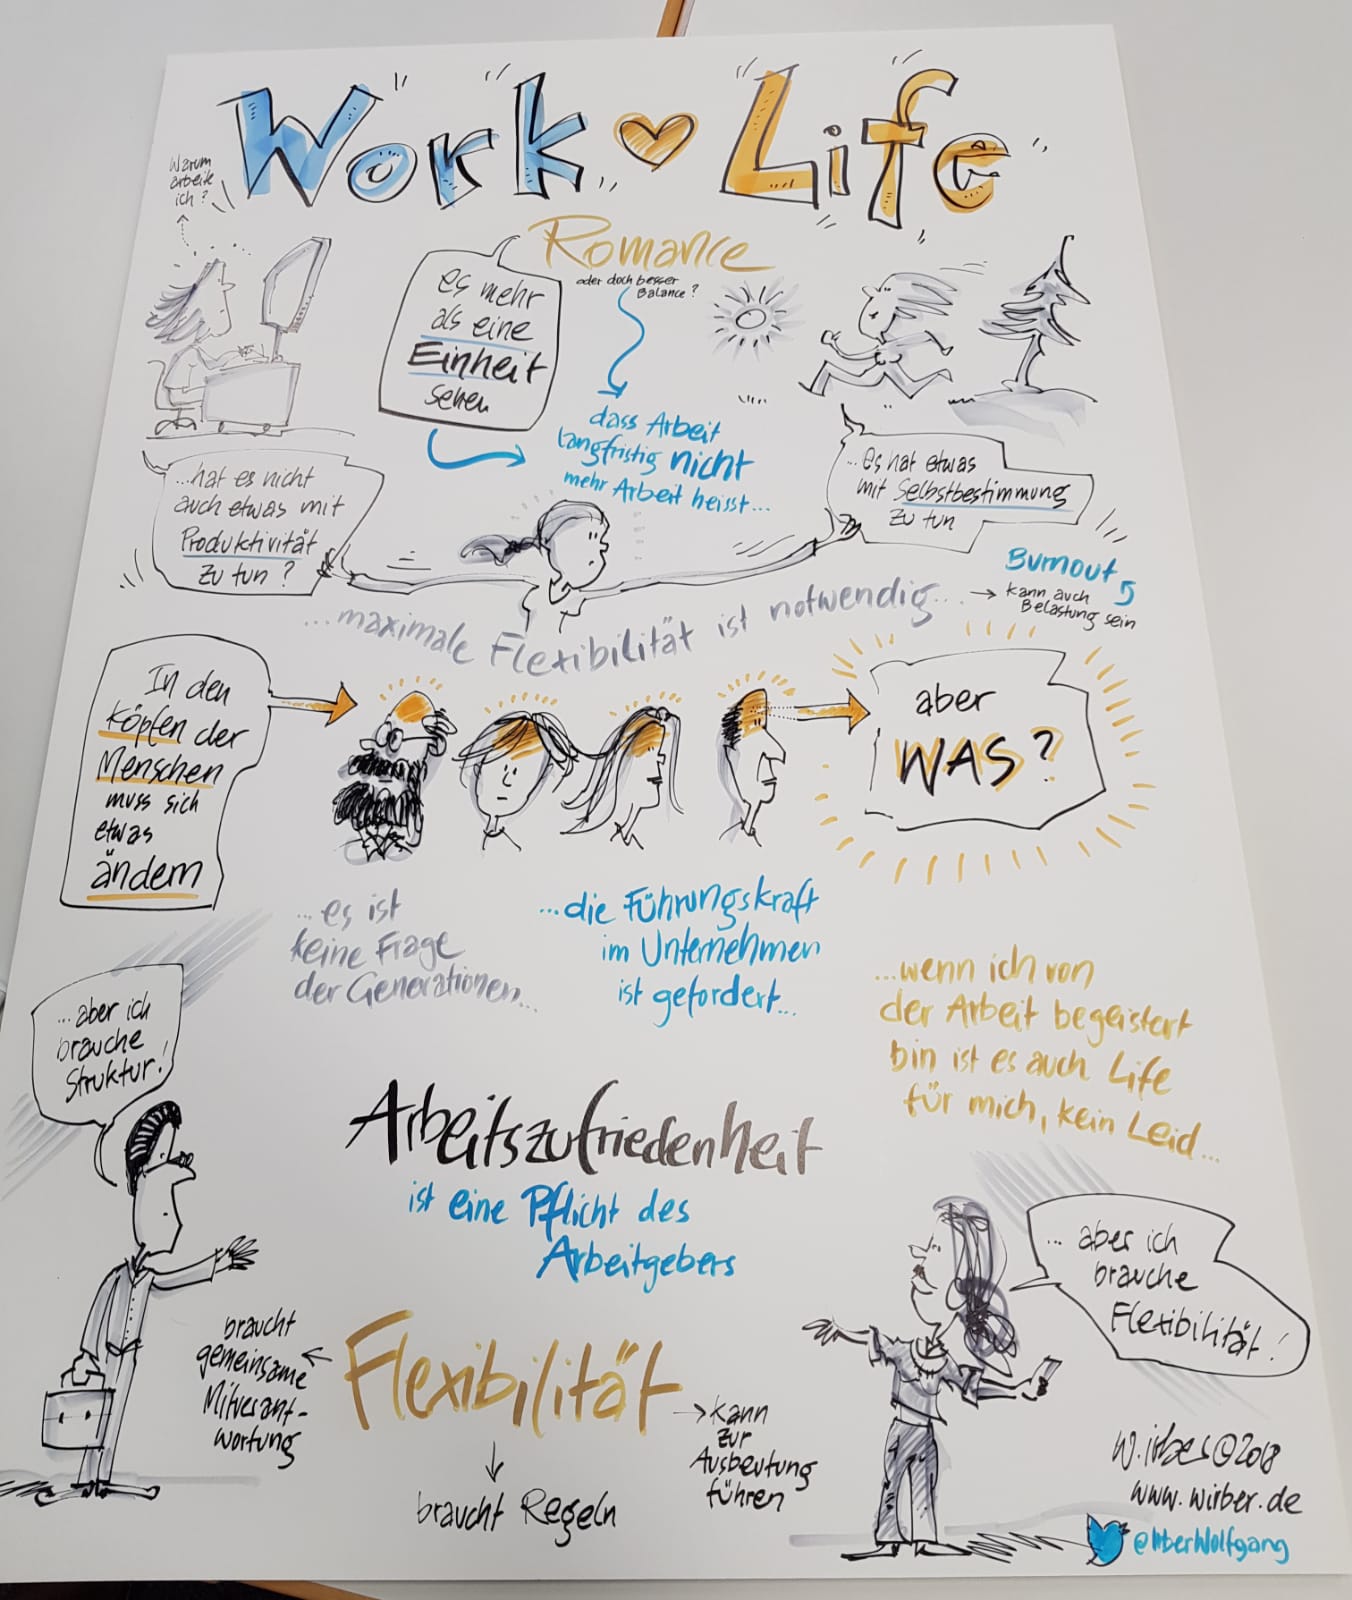 Work Life
Warum
arbeite
ich?
Romance
oder doch besser
Balance?
es mehr
als eine
Einheit
sehen
dass Arbeit
langfristig nicht
mehr Arbeit heisst...
...hat es nicht
auch etwas mit
Produktivität
zu tun?
...es hat etwas
mit Selbstbestimmung
zu tun
Burnout
→ kann auch
Belastung sein
...maximale Flexibilität ist notwendig...
In den
Köpfen der
Menschen
muss sich
etwas
ändern
aber
WAS?
...es ist
keine Frage
der Generationen...
...die Führungskraft
im Unternehmen
ist gefordert...
...wenn ich von
der Arbeit begeistert
bin ist es auch Life
für mich, kein Leid...
...aber ich
brauche
Struktur!
Arbeitszufriedenheit
ist eine Pflicht des
Arbeitgebers
...aber ich
brauche
Flexibilität!
Flexibilität
braucht
gemeinsame
Mitverant-
wortung
braucht Regeln
→ kann
zur
Ausbeutung
führen
W.irber©2018
www.wirber.de
@IrberWolfgang